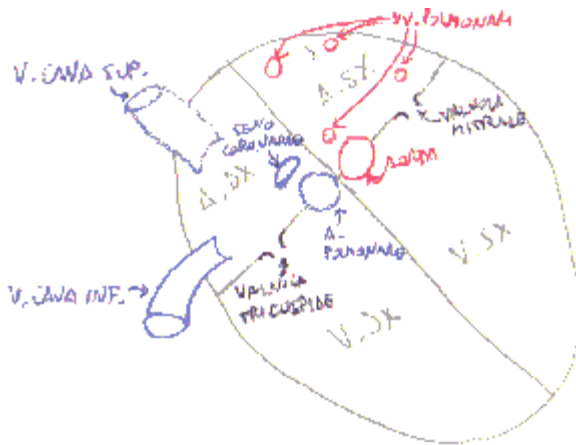 VV. POLMONARI
V. CAVA SUP.
A. SX.
VALVOLA
MITRALE
SENO
CORONARIO
AORTA
A. DX
A.
POLMONARE
V. SX
V. CAVA INF.
VALVOLA
TRICUSPIDE
V. DX